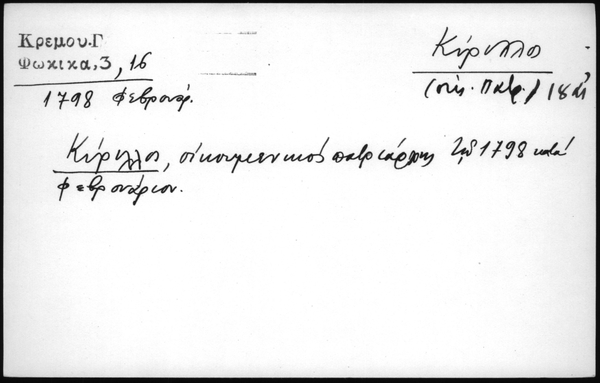 Κρεμου.Γ
Φωκικα,3, 16
1798 Φεβρουάρ.
Κύριλλος
(οἰκ. Πατρ.) 18
Κύριλλος, οἰκουμενικός πατριάρχης 1798 κατά
Φεβρουάριον.